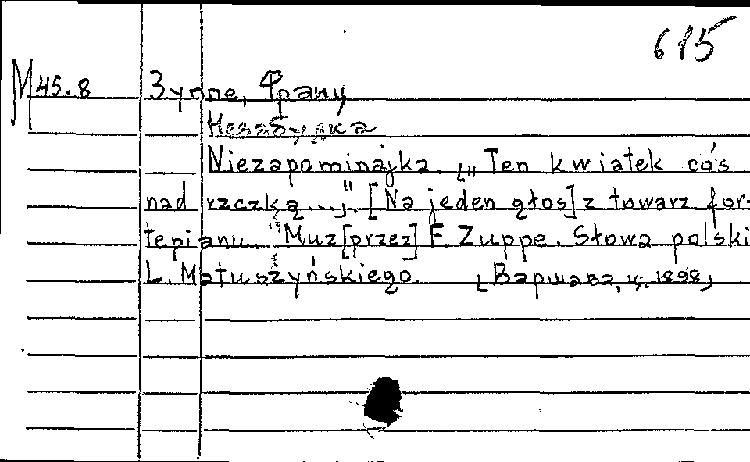 615
M45.8 Зуппе, Франц
Незабудка
Niezapominajka. „Ten kwiatek cós
nad rzczką..." [Na jeden głos] z towarz for-
tepianu. Muz[przez] F. Zuppe. Słowa polski
L. Matuszyńskiego. [Варшава, ц. 1898]